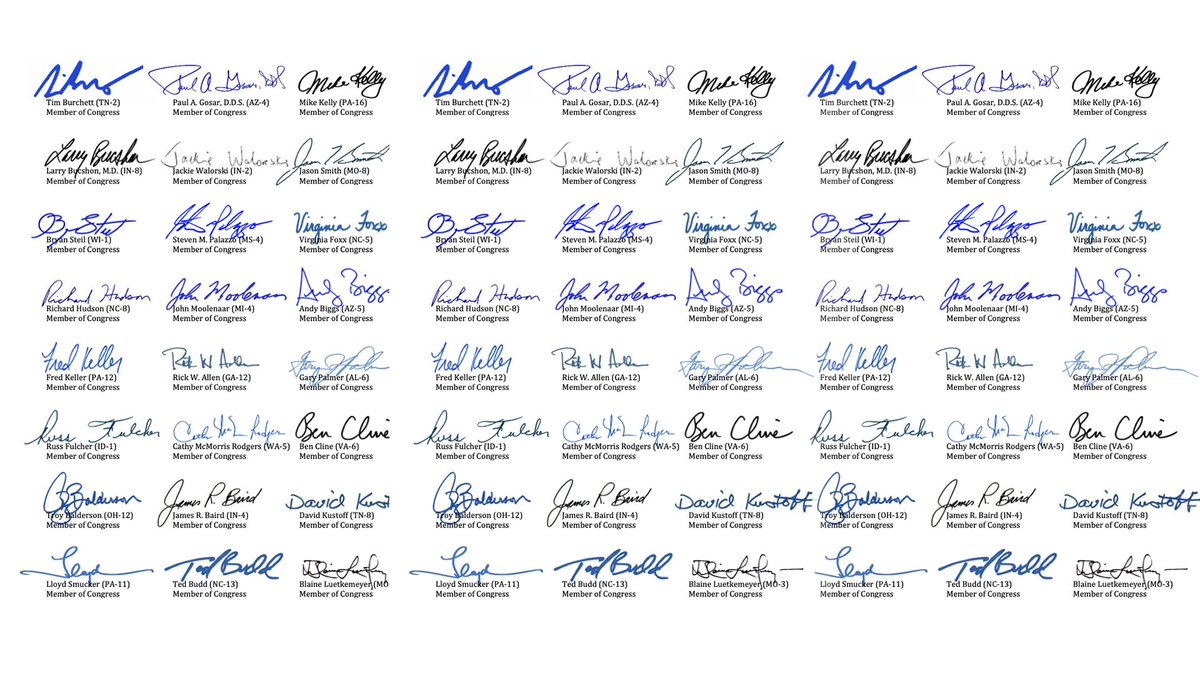 Paul A Gosar, DDS Mike Kelly Paul A Gosar, DDS Mike Kelly Paul A Gosar, DDS Mike Kelly
Tim Burchett (TN-2) Paul A. Gosar, D.D.S. (AZ-4) Mike Kelly (PA-16) Tim Burchett (TN-2) Paul A. Gosar, D.D.S. (AZ-4) Mike Kelly (PA-16) Tim Burchett (TN-2) Paul A. Gosar, D.D.S. (AZ-4) Mike Kelly (PA-16)
Member of Congress Member of Congress Member of Congress Member of Congress Member of Congress Member of Congress Member of Congress Member of Congress Member of Congress
Larry Bucshon Jackie Walorski Jason T Smith Larry Bucshon Jackie Walorski Jason T Smith Larry Bucshon Jackie Walorski Jason T Smith
Larry Bucshon, M.D. (IN-8) Jackie Walorski (IN-2) Jason Smith (MO-8) Larry Bucshon, M.D. (IN-8) Jackie Walorski (IN-2) Jason Smith (MO-8) Larry Bucshon, M.D. (IN-8) Jackie Walorski (IN-2) Jason Smith (MO-8)
Member of Congress Member of Congress Member of Congress Member of Congress Member of Congress Member of Congress Member of Congress Member of Congress Member of Congress
Virginia Foxx Virginia Foxx Virginia Foxx
Bryan Steil (WI-1) Steven M. Palazzo (MS-4) Virginia Foxx (NC-5) Bryan Steil (WI-1) Steven M. Palazzo (MS-4) Virginia Foxx (NC-5) Bryan Steil (WI-1) Steven M. Palazzo (MS-4) Virginia Foxx (NC-5)
Member of Congress Member of Congress Member of Congress Member of Congress Member of Congress Member of Congress Member of Congress Member of Congress Member of Congress
Richard Hudson John Moolenaar Andy Biggs Richard Hudson John Moolenaar Andy Biggs Richard Hudson John Moolenaar Andy Biggs
Richard Hudson (NC-8) John Moolenaar (MI-4) Andy Biggs (AZ-5) Richard Hudson (NC-8) John Moolenaar (MI-4) Andy Biggs (AZ-5) Richard Hudson (NC-8) John Moolenaar (MI-4) Andy Biggs (AZ-5)
Member of Congress Member of Congress Member of Congress Member of Congress Member of Congress Member of Congress Member of Congress Member of Congress Member of Congress
Fred Keller Rick W Allen Fred Keller Rick W Allen Fred Keller Rick W Allen
Fred Keller (PA-12) Rick W. Allen (GA-12) Gary Palmer (AL-6) Fred Keller (PA-12) Rick W. Allen (GA-12) Gary Palmer (AL-6) Fred Keller (PA-12) Rick W. Allen (GA-12) Gary Palmer (AL-6)
Member of Congress Member of Congress Member of Congress Member of Congress Member of Congress Member of Congress Member of Congress Member of Congress Member of Congress
Russ Fulcher Ben Cline Russ Fulcher Ben Cline Russ Fulcher Ben Cline
Russ Fulcher (ID-1) Cathy McMorris Rodgers (WA-5) Ben Cline (VA-6) Russ Fulcher (ID-1) Cathy McMorris Rodgers (WA-5) Ben Cline (VA-6) Russ Fulcher (ID-1) Cathy McMorris Rodgers (WA-5) Ben Cline (VA-6)
Member of Congress Member of Congress Member of Congress Member of Congress Member of Congress Member of Congress Member of Congress Member of Congress Member of Congress
Balderson James R. Baird David Kust Balderson James R. Baird David Kustoff Balderson James R. Baird David Kustoff
Troy Balderson (OH-12) James R. Baird (IN-4) David Kustoff (TN-8) Troy Balderson (OH-12) James R. Baird (IN-4) David Kustoff (TN-8) Troy Balderson (OH-12) James R. Baird (IN-4) David Kustoff (TN-8)
Member of Congress Member of Congress Member of Congress Member of Congress Member of Congress Member of Congress Member of Congress Member of Congress Member of Congress
Lloyd Ted Budd Lloyd Ted Budd Lloyd Ted Budd
Lloyd Smucker (PA-11) Ted Budd (NC-13) Blaine Luetkemeyer (MO Lloyd Smucker (PA-11) Ted Budd (NC-13) Blaine Luetkemeyer (MO-3) Lloyd Smucker (PA-11) Ted Budd (NC-13) Blaine Luetkemeyer (MO-3)
Member of Congress Member of Congress Member of Congress Member of Congress Member of Congress Member of Congress Member of Congress Member of Congress Member of Congress